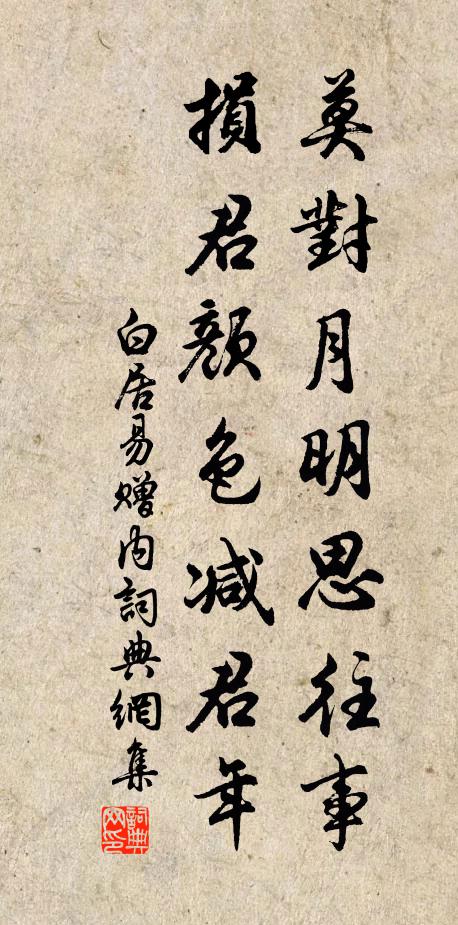 莫對月明思往事
損君顏色減君年
白居易贈内詞典網集
詞典网印